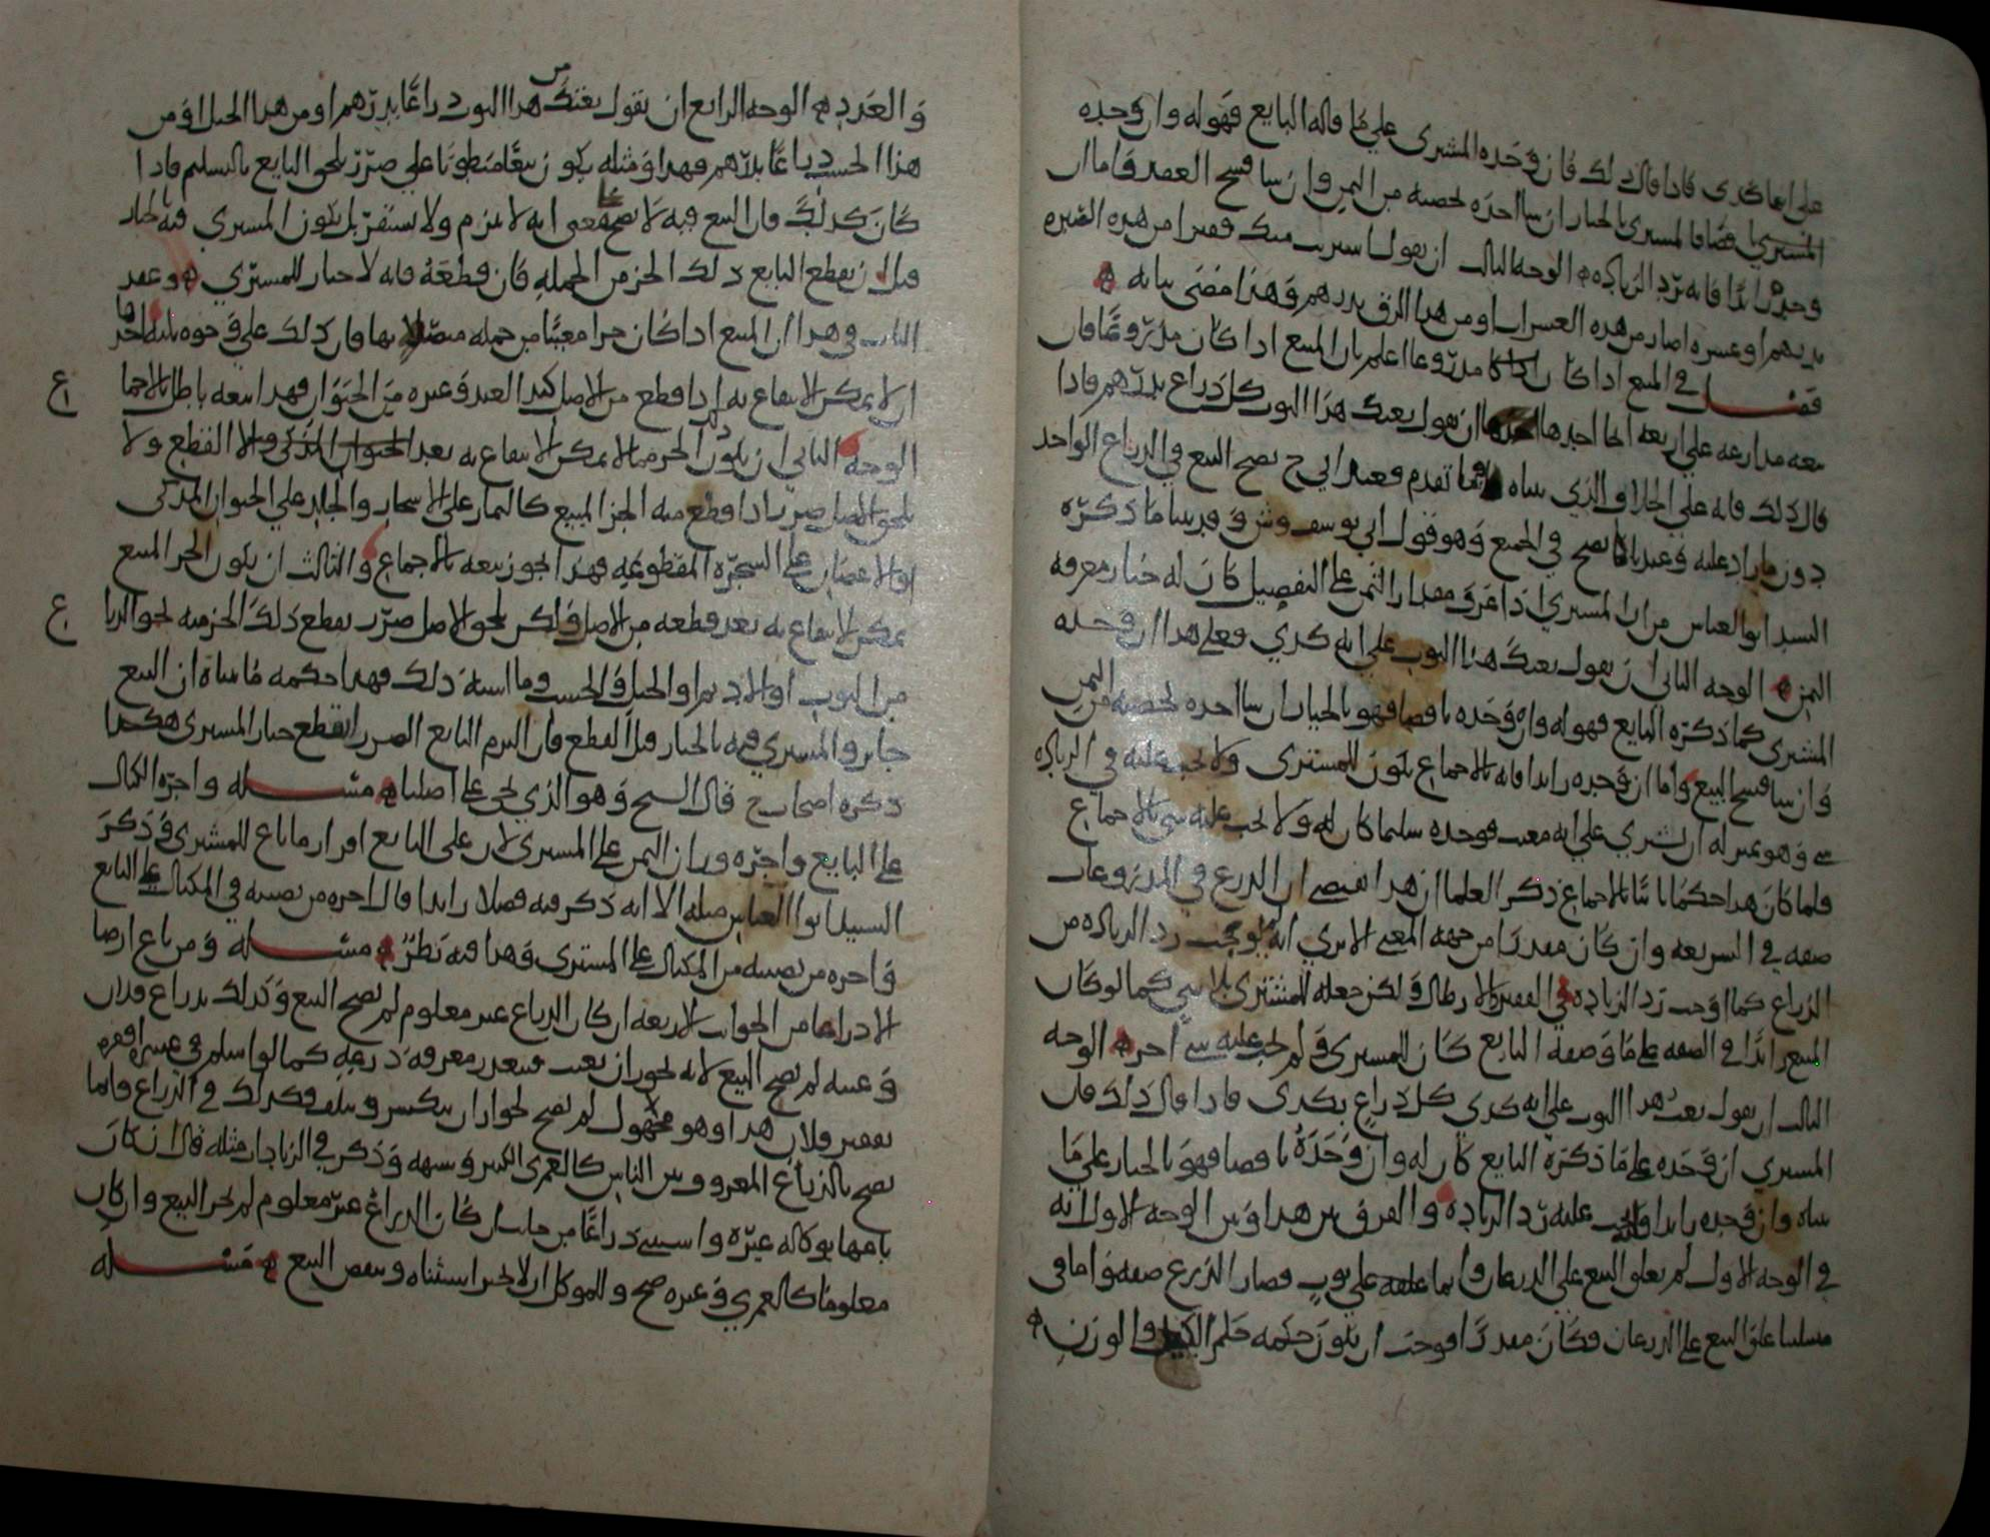 على انها كذى فاذا قال ذلك فان وجده المشترى على ما قاله البايع فهو له وان وجده
المشتري ناقصا فالمشترى بالخيار ان شا اخذه بحصته من الثمن وان شا فسخ العقد فاما ان
وجده زايدا فانه ترد الزياده الوجه الثالث ان يقول اشتريت منك قفيزا من هذه القفيزه
بدرهم او عشره اصار من هذه العشرات او من هذا الزق بدرهم وهذا مضى بيانه
فصل في المبيع اذا كان مذروعا اعلم بان المبيع اذا كان مذروعا فان
بيعه مذارعه على اربعه انحا احدها ان يقول بعتك هذا الثوب كل ذراع بدرهم فاذا
قال ذلك فانه على الخلاف الذي بيناه فيما تقدم فعند ابي ح يصح البيع في الذراع الواحد
دون ما زاد عليه وعندنا يصح في الجميع وهو قول ابي يوسف وش وقد بينا ما ذكره
السيد ابو العباس من ان المشتري اذا عرف مقدار الثمن على التفصيل كان له خيار معرفه
الثمن الوجه الثاني ان يقول بعتك هذا الثوب على انه كذي فعلى هذا ان وجده
المشترى كما ذكره البايع فهو له وان وجده ناقصا فهو بالخيار ان شا اخذه بحصته من الثمن
وان شا فسخ البيع واما ان وجده زايدا فانه بالاجماع يكون للمشترى ولا يجب عليه في الزياده
شي وهو بمنزله ان اشتري على انه معيب فوجده سليما كان له ولا يجب عليه شي بالاجماع
فلما كان هذا حكما ثابتا بالاجماع ذكر العلما ان هذا يقتضي ان الذرع في المذروعات
صفه في الشريعه وان كان مقدرا من جهه المعنى الا ترى انه لم يوجب رد الزياده من
الذراع كما اوجب رد الزياده في القفيز والارطال ولكن جعله للمشترى بلا شي كما لو كان
المبيع زايدا في الصفه على ما وصفه البايع كان للمشترى ولم يجب عليه شي اخر الوجه
الثالث ان يقول بعت هذا الثوب على انه كذي كل ذراع بكذى فاذا قال ذلك فان
المشتري ان وجده على ما ذكره البايع كان له وان وجده ناقصا فهو بالخيار على ما
بيناه وان وجده زايدا وجب عليه رد الزياده والفرق بين هذا وبين الوجه الاول انه
في الوجه الاول لم يعلق البيع على الذرعان وانما علقه على ثوب فصار الذرع صفه واما في
مسلتنا علق البيع على الذرعان فكان مقدرا فوجب ان يكون حكمه حكم الكيل والوزن
والعدد الوجه الرابع ان يقول بعتك من هذا الثوب ذراعا بدرهم او من هذا الحبل او من
هذا الخشب باعا بدرهم فهذا ومثله يكون بيعا منطويا على ضرر يلحق البايع بالتسليم فاذا
كان كذلك فان البيع فيه لا يصح بمعنى انه لا يلزم ولا يستقر بل يكون المشتري فيه بالخيار
قبل ان يقطع البايع ذلك الجز من الجمله فان قطعه فانه لا خيار للمشتري وعقد
الباب في هذا ان المبيع اذا كان جزا معينا من جمله متصلا بها فان ذلك على وجوه ثلثه احدها
ان لا يمكن الانتفاع به اذا قطع من الاصل كيد العبد وغيره من الحيوان فهذا بيعه باطل بالاجماع
الوجه الثاني ان يكون الجز مما لا يمكن الانتفاع به بعد القطع ولا
يلحق الاصل ضرر اذا قطع منه الجز المبيع كالثمار على الاشجار والجلد على الحيوان المذكى
او الاغصان على الشجره المقطوعه فهذا يجوز بيعه بالاجماع والثالث ان يكون الجز المبيع
يمكن الانتفاع به بعد قطعه من الاصل ولكن يلحق الاصل ضرر بقطع ذلك الجز منه نحو الذراع
من الثوب او الاديم او الحبل والخشب وما اشبه ذلك فهذا حكمه ما بيناه ان البيع
جايز والمشتري فيه بالخيار قبل القطع فان التزم البايع الضرر انقطع خيار المشترى هكذا
ذكره اصحاب ح قال الشيخ وهو الذي يجي على اصلنا مسله واجره الكيال
على البايع واجره وزان الثمن على المشترى لان على البايع افراز ما باع للمشترى وذكر
السيد ابوا العباس مثله الا انه ذكر فيه فصلا زايدا قال اجره من نصبه في المكيال على البايع
واجره من نصبه من المكيال على المشترى وهذا فيه نظر مسله ومن باع ارضا
الا ذراعا من الجوانب الاربعه ان كان الذراع غير معلوم لم يصح البيع وكذلك بذراع فلان
وعينه لم يصح البيع لانه يجوز ان يغيب فيتعذر معرفه ذرعه كما لو اسلم في عشره اقفزه
بقفيز فلان هذا وهو مجهول لم يصح لجواز ان ينكسر ويتلف فكذلك في الذراع وانما
يصح بالذراع المعروف بين الناس كالعمرى الكبير وشبهه وذكر في الزيادات مثله قال ان كان
معلوما كالعمري وغيره صح وللموكل ان لا يجيز استثناه وينقض البيع مسله